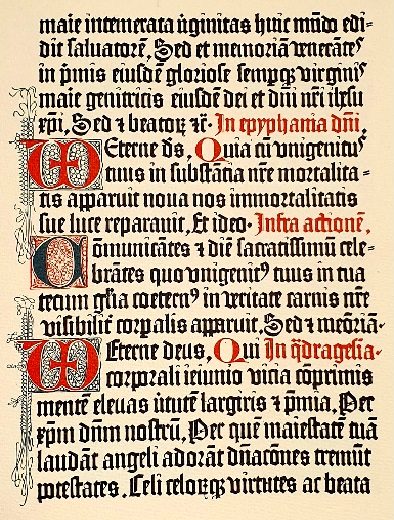 maie intemerata v̓ginitas huic mūdo edi=
dit saluatorē. Sed et memoriā venerātes
in p̄mis eiusdē gloriose semꝑqꝫ virginis
marie genitricis eiusdē dei et dn̄i nr̄i ihesu
xp̄i. Sed ⁊ beatoꝝ ⁊c̄. In epyphania dn̄i.
Eterne ds̄. Quia cū vnigenitus
tuus in substātia nr̄e mortalita-
tis apparuit noua nos immortalitatis
sue luce reparauit. Et ideo. Infra actionē.
Cōmunicātes ⁊ diē sacratissimū cele=
brātes quo vnigenitꝰ tuus in tua
tecum gl̄ia coeternꝰ in veritate carnis nr̄e
visibilit̓ corꝑalis apparuit. Sed ⁊ meōriā.
Eterne deus. Qui In q̄dragesīa.
corporali ieiunio vicia cōprimis
mentē eleuas v̓tutē largiris ⁊ p̄mia. Per
xp̄m dn̄m nostrū. Per quē maiestatē tuā
laudāt angeli adorāt dn̄acōnes tremūt
potestates. Celi celoꝝqꝫ virtutes ac beata